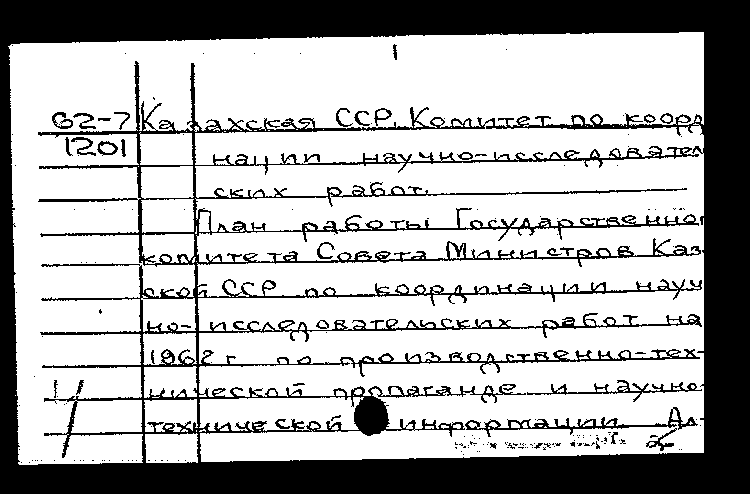 62-7 Казахская ССР. Комитет по коорд
1201 нации научно-исследовател
ских работ.
План работы Государственно
комитета Совета Министров Каз
ской ССР по координации науч
но-исследовательских работ на
1962 г по производственно-тех-
нической пропаганде и научно-
технической информации. Ал-